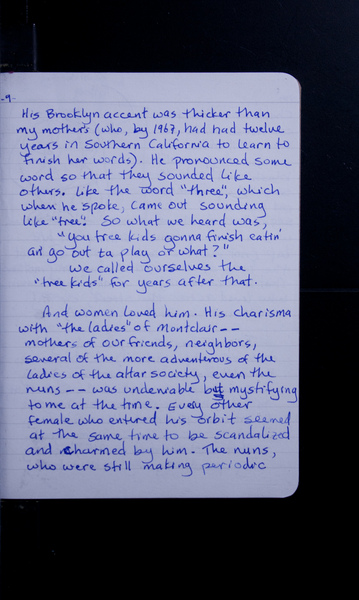 -9-
His Brooklyn accent was thicker than
my mothers (who, by 1967, had had twelve
years in Southern California to learn to
finish her words). He pronounced some
word so that they sounded like
others. Like the word "three", which
when he spoke, came out sounding
like "tree". So what we heard was,
"you tree kids gonna finish eatin'
an' go out ta play or what?"
we called ourselves the
"tree kids" for years after that.
And women loved him. His charisma
with "the ladies" of Montclair --
mothers of our friends, neighbors,
several of the more adventerous of the
ladies of the altar society, even the
nuns -- was undeniable but mystifying
to me at the time. Every other
female who entered his orbit seemed
at the same time to be scandalized
and charmed by him. The nuns,
who were still making periodic